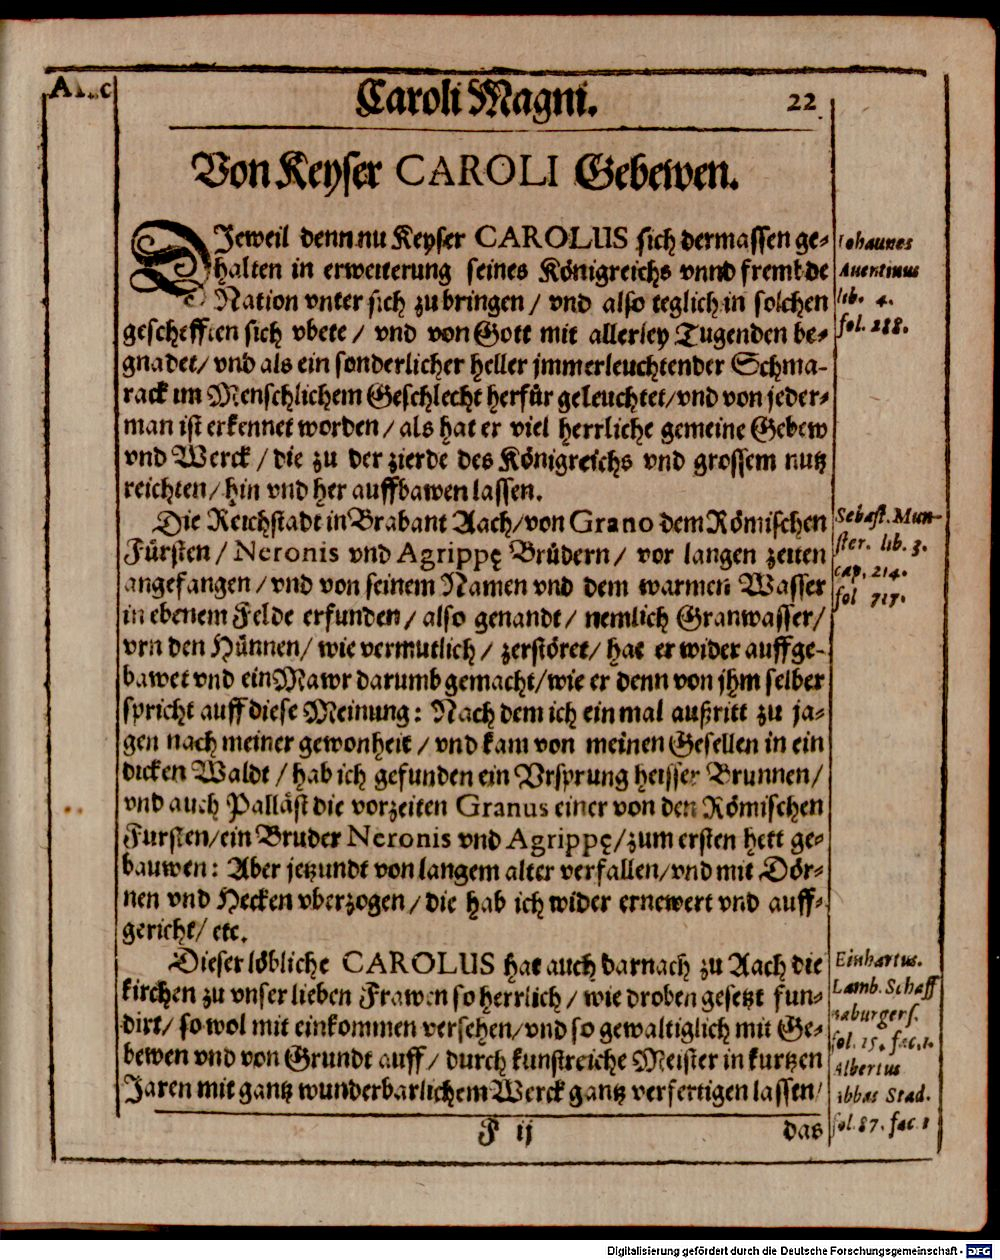 Caroli Magni.
22
Von Keyser CAROLI Gebewen.
DJeweil denn nu Keyser CAROLUS sich dermassen ge-
halten in erweiterung seines Königreichs vnnd frembde
Nation vnter sich zu bringen / vnd also teglich in solchen
geschefften sich vbete / vnd von Gott mit allerley Tugenden be-
gnadet / vnd als ein sonderlicher heller jmmerleuchtender Schma-
rack im Menschlichem Geschlecht herfür geleuchtet / vnd von jeder-
man ist erkennet worden / als hat er viel herrliche gemeine Gebew
vnd Werck / die zu der zierde des Königreichs vnd grossem nutz
reichten / hin vnd her auffbawen lassen.
Die Reichstadt in Brabant Aach / von Grano dem Römischen
Fürsten / Neronis vnd Agrippę Brüdern / vor langen zeiten
angefangen / vnd von seinem Namen vnd dem warmen Wasser
in ebenem Felde erfunden / also genandt / nemlich Granwasser /
vrn den Hünnen / wie vermutlich / zerstöret / hat er wider auffge-
bawet vnd ein Mawr darumb gemacht / wie er denn von jhm selber
spricht auff diese Meinung: Nach dem ich ein mal außritt zu ja-
gen nach meiner gewonheit / vnd kam von meinen Gesellen in ein
dicken Waldt / hab ich gefunden ein Vrsprung heisser Brunnen /
vnd auch Palläst die vorzeiten Granus einer von den Römischen
Fursten / ein Bruder Neronis vnd Agrippę / zum ersten hett ge-
bauwen: Aber jetzundt von langem alter verfallen / vnd mit Dör-
nen vnd Hecken vberzogen / die hab ich wider ernewert vnd auff-
gericht / etc.
Dieser löbliche CAROLUS hat auch darnach zu Aach die
kirchen zu vnser lieben Frawen so herrlich / wie droben gesetzt fun-
dirt / so wol mit einkommen versehen / vnd so gewaltiglich mit Ge-
bewen vnd von Grundt auff / durch kunstreiche Meister in kurtzen
Jaren mit gantz wunderbarlichem Werck gantz verfertigen lassen /
F ij
das
Iohannes
Auentinus
lib. 4.
fol. 288.
Sebast. Mun-
ster. lib. 3.
cap. 214.
fol 717.
Einhartus.
Lamb. Schaff
naburgens.
fol. 15. fac. 1.
Albertus
abbas Stad.
fol. 87. fac. 1
Digitalisierung gefördert durch die Deutsche Forschungsgemeinschaft - DFG